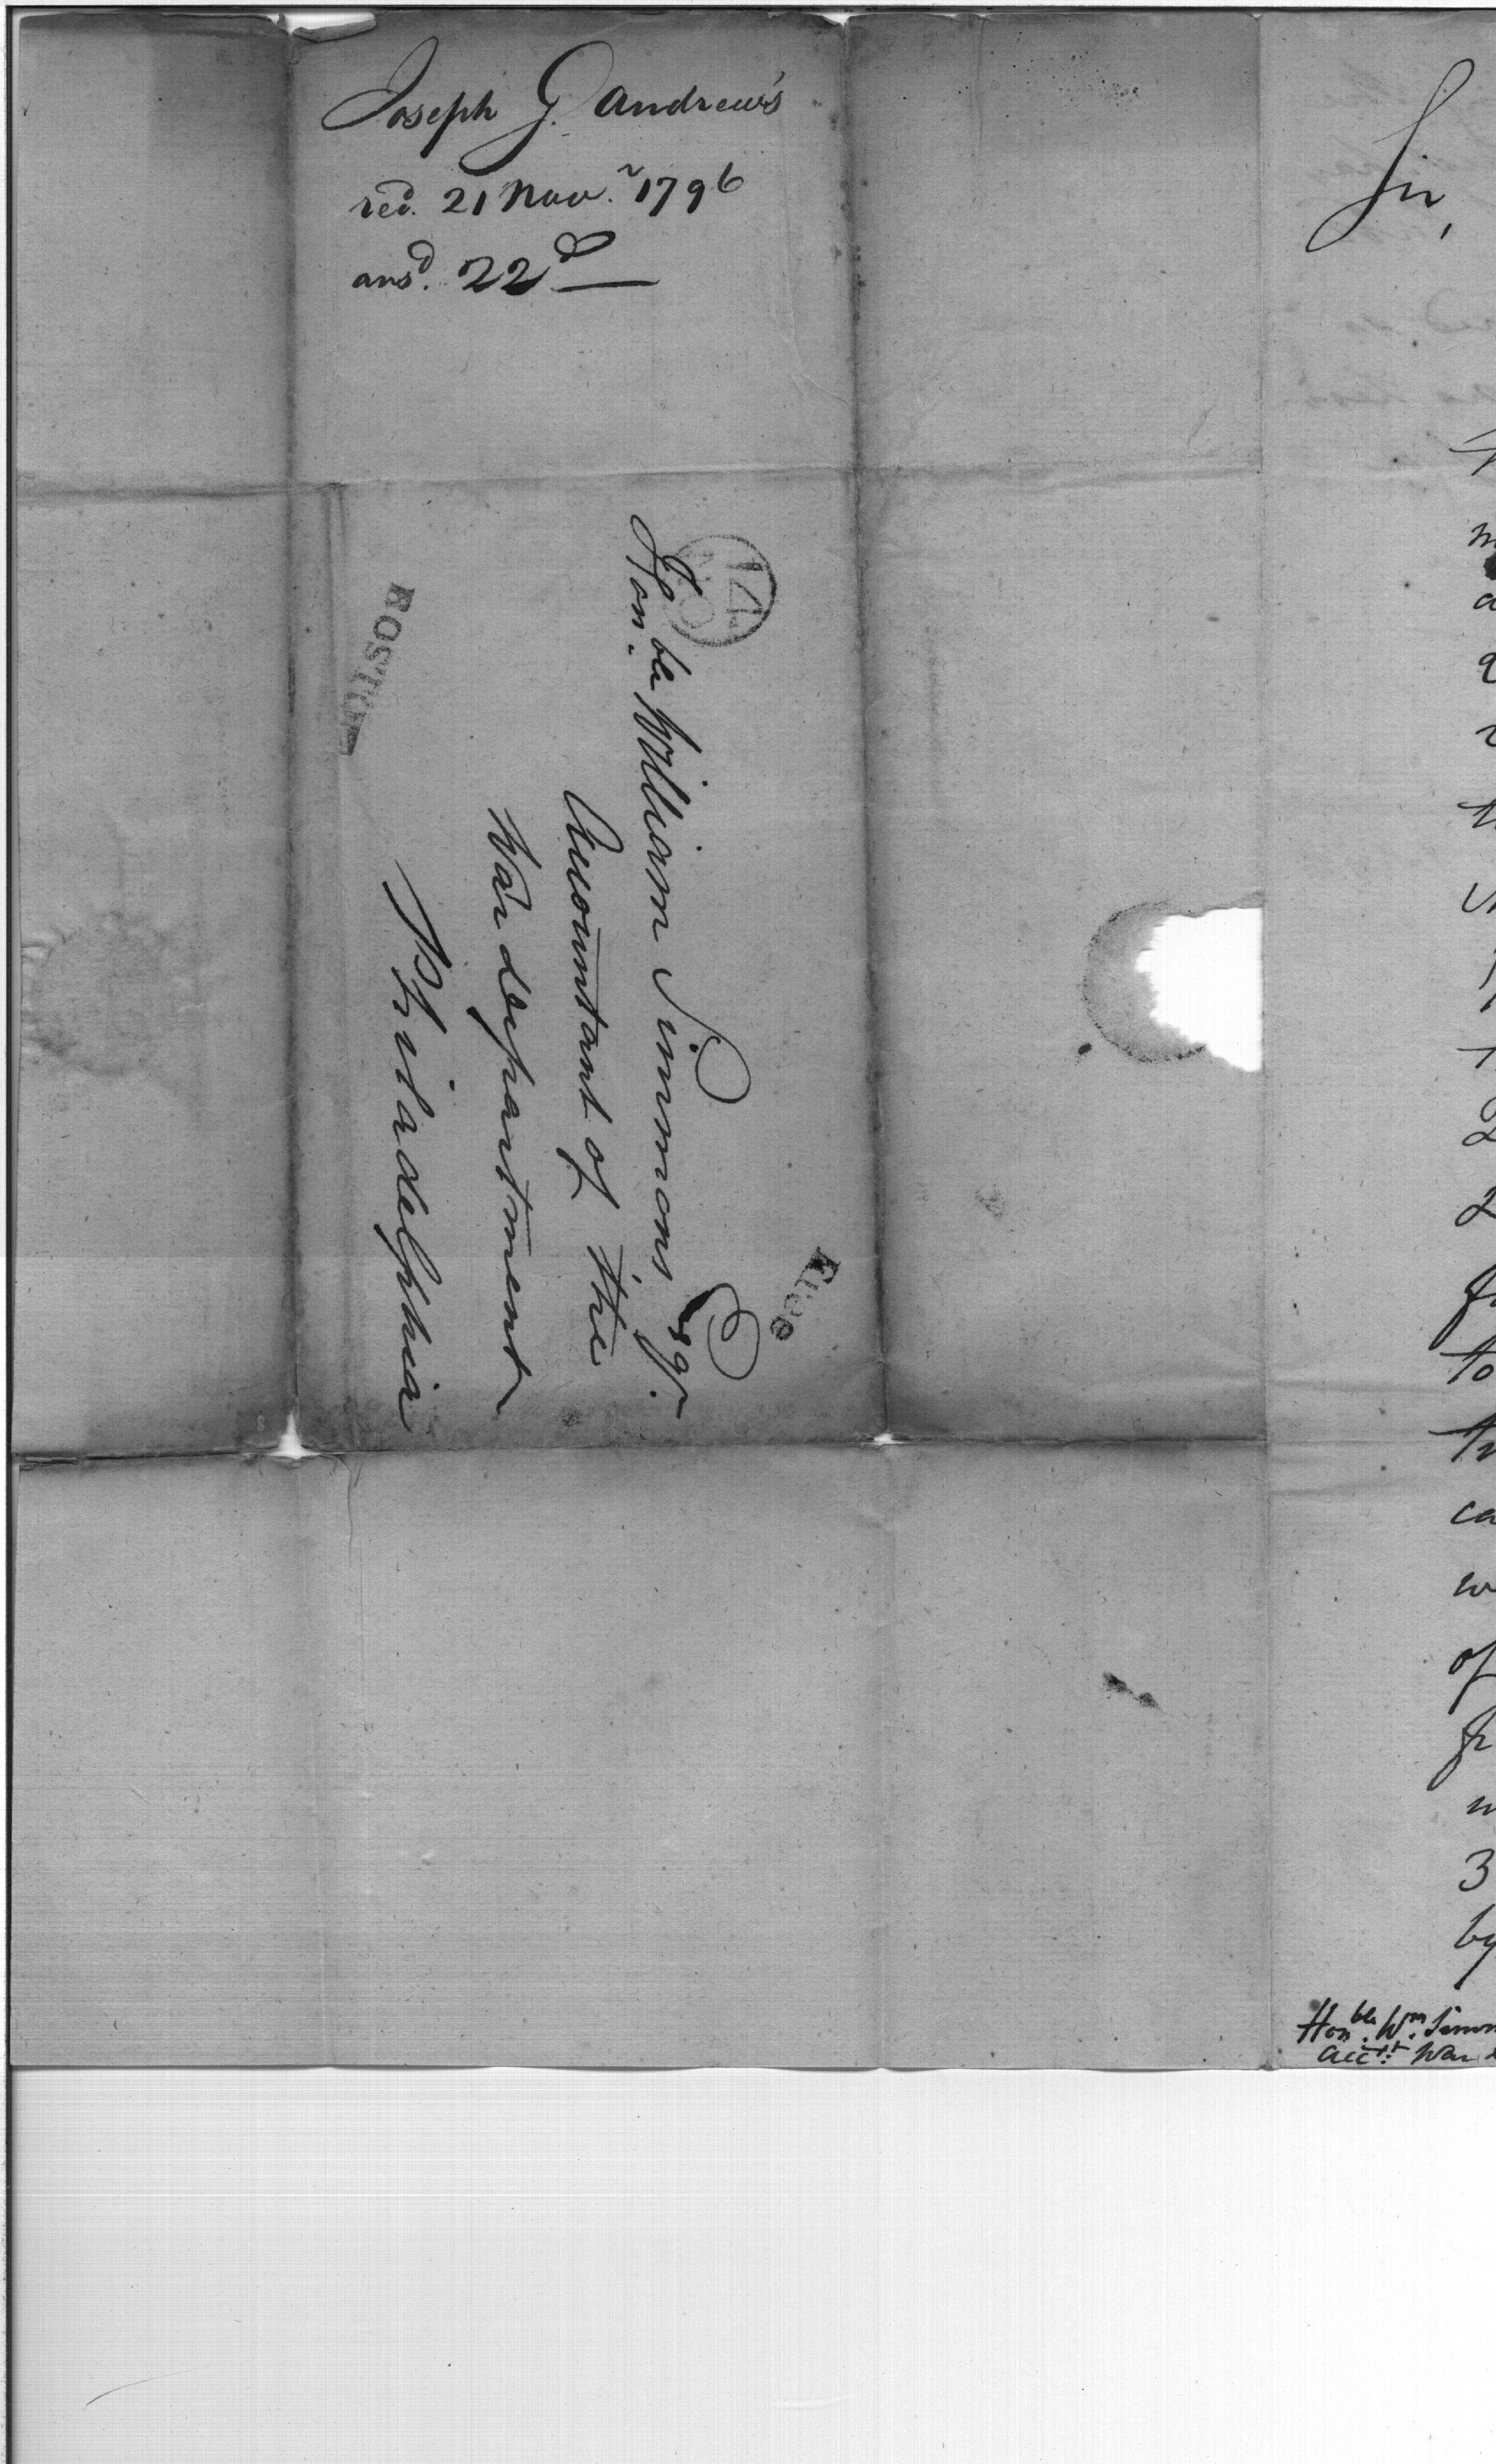 Joseph G. Andrews
recd. 21 Novr. 1796
ansd. 22d
14
NO
Honble. William Simmons Esqr.
Accountant of the
War department
Philadelphia
BOSTON
Free
Sir,
to
ca
of
3
by
Honble. Wm. Simm
Acctt. War d